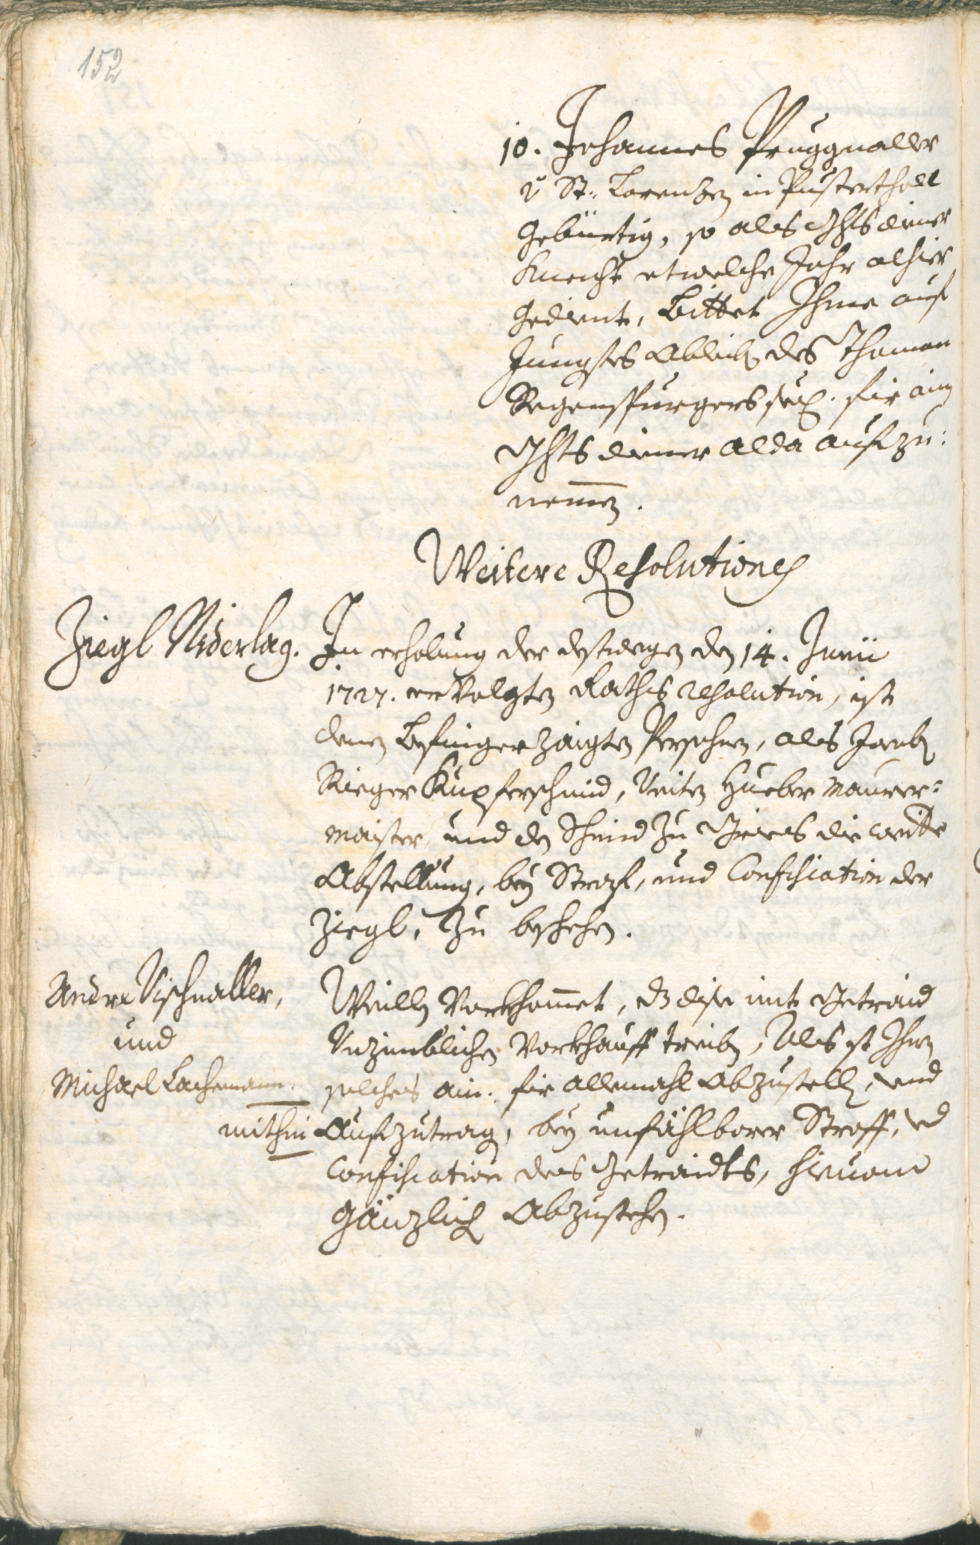 152
10. Johannes Pruggnaller
v̈ St: Lorenzen in Pusterthall
gebürtig, so als Ghtsdiener
Knecht etwelche Jahr alhier
gedient, Bittet Ihme auf
Jungstes Ableib des Thoman
Regenspurgers seel. für ain
Ghtsdiener alda aufzu:
nemen.
Weitere Resolutiones
Ziegl Niderlag.
In erholung der destwegen den 14. Junii
1727. ervolgten Raths resolution, ist
denen Befingerzaigten Persohnen, als Jacob
Rieger Kupferschmid, Veiten Hueber Maurer=
maister, und den Schmid zu die weitte
Abstellung, bey Straf, und Confiscation der
Ziegl, zu beschehen.
Andre Vischnaller,
und
Michael Lachemann.
Weillen Vorkhomet, dz dise mit Getraid
Unzimblichen Vorkhauff treiben, Als ist Ihnen
solches ain. für allemahl Abzustellen, und
mithin Aufzutragen, bey unfählbarer Straff, und
Confiscation des Getraidts, hievon
gänzlich Abzustehen.